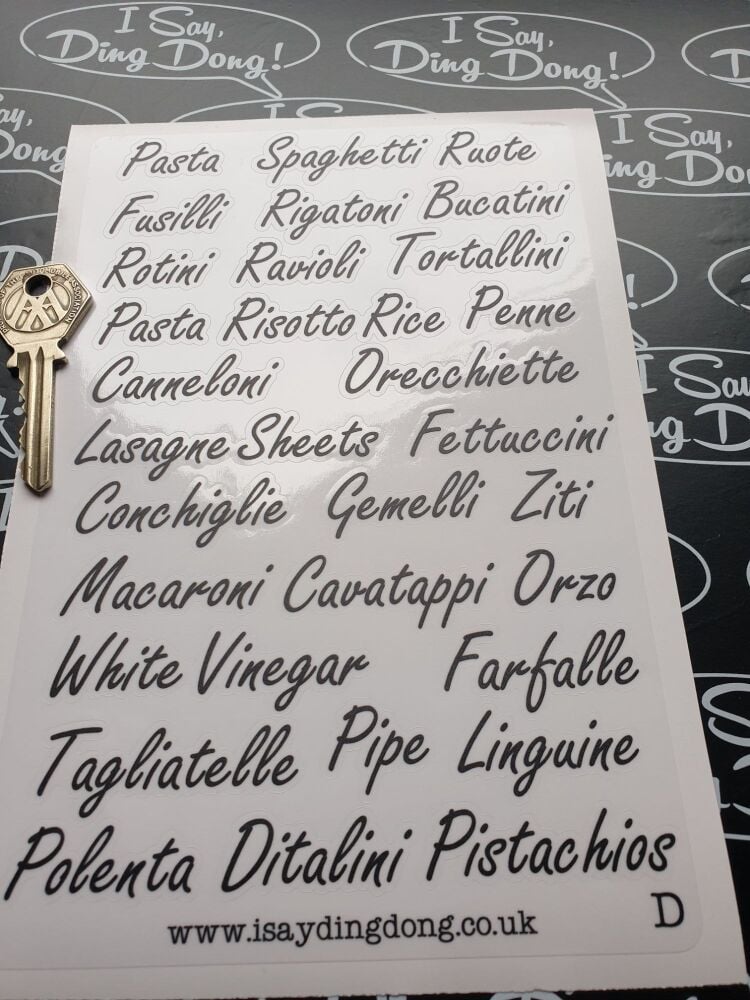 I Say,
Ding Dong!
I Say,
Ding Dong!
I Say,
ing Do
Pasta Spaghetti Ruote
Fusilli Rigatoni Bucatini
Rotini Ravioli Tortallini
Pasta Risotto Rice Penne
Canneloni Orecchiette
Lasagne Sheets Fettuccini
Conchiglie Gemelli Ziti
Macaroni Cavatappi Orzo
White Vinegar Farfalle
Tagliatelle Pipe Linguine
Polenta Ditalini Pistachios
www.isaydingdong.co.uk D